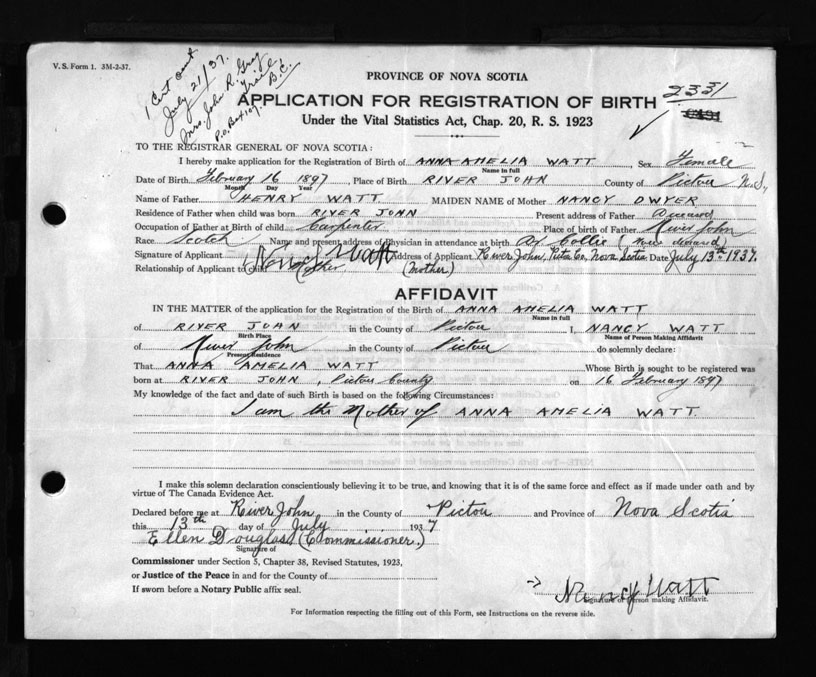 V. S. Form 1. 3M-2-37.
1 Cert sent
July 21/37.
Mrs. John R. Gray
P.O. Box 107, Trail
B.C.
PROVINCE OF NOVA SCOTIA
2331
APPLICATION FOR REGISTRATION OF BIRTH
Under the Vital Statistics Act, Chap. 20, R. S. 1923
TO THE REGISTRAR GENERAL OF NOVA SCOTIA:
I hereby make application for the Registration of Birth of ANNA AMELIA WATT, Sex Female
Name in full
Date of Birth February 16 1897, Place of Birth RIVER JOHN County of Pictou N.S,
Month Day Year
Name of Father HENRY WATT MAIDEN NAME of Mother NANCY DWYER
Residence of Father when child was born RIVER JOHN Present address of Father deceased
Occupation of Father at Birth of child Carpenter Place of birth of Father River John
Race Scotch Name and present address of Physician in attendance at birth Dr Collie (now deceased)
Signature of Applicant Nancy Watt Address of Applicant River John, Pictou Co, Nova Scotia Date July 13th 1937.
Relationship of Applicant to child Mother (mother)
AFFIDAVIT
IN THE MATTER of the application for the Registration of the Birth of ANNA AMELIA WATT
Name in full
of RIVER JOHN in the County of Pictou I, NANCY WATT
Birth Place Name of Person Making Affidavit
of River John in the County of Pictou do solemnly declare:
Present Residence
That ANNA AMELIA WATT Whose Birth is sought to be registered was
born at RIVER JOHN, Pictou County on 16 February 1897
My knowledge of the fact and date of such Birth is based on the following Circumstances:
I am the Mother of ANNA AMELIA WATT.
I make this solemn declaration conscientiously believing it to be true, and knowing that it is of the same force and effect as if made under oath and by
virtue of The Canada Evidence Act.
Declared before me at River John in the County of Pictou and Province of Nova Scotia
this 13th day of July 1937
Ellen Douglas (Commissioner.)
Signature of
Commissioner under Section 5, Chapter 38, Revised Statutes, 1923,
or Justice of the Peace in and for the County of
If sworn before a Notary Public affix seal.
Nancy Watt
Signature of Person making Affidavit.
For Information respecting the filling out of this Form, see Instructions on the reverse side.